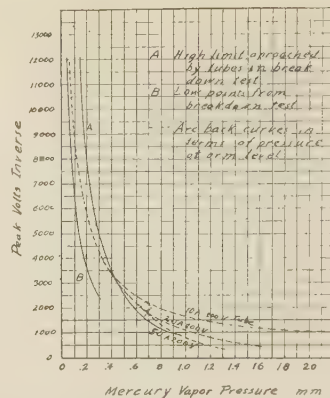 13000
12000
11000
10000
9000
8000
7000
6000
5000
4000
3000
2000
1000
0
Peak Volts Inverse
A High limit aproached
by tubes in break
down test
B Low points from
breakdown test
Arc back curves in
terms of pressure
at arm level
A
B
10A 600V Tube
0 .2 .4 .6 .8 1.0 1.2 1.4 1.6 1.8 2.0
Mercury Vapor Pressure mm